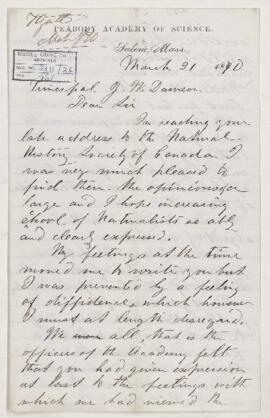 Hyatt
PEABODY ACADEMY OF SCIENCE,
Salem, Mass.
March 31 1870
Principal J. W. Dawson.
Dear Sir
In reading your
late address to the Natural
History Society of Canada I
was very much pleased to
find there the opinions of a
large and I hope increasing
school of Naturalists so ably
and clearly expressed.
My feelings at the time
moved me to write you but
I was prevented by a feeling
of diffidence, which however
I must at length disregard.
We all, that is the
officers of the Academy felt
that you had given expression
at last to the feelings with
which we had viewed the